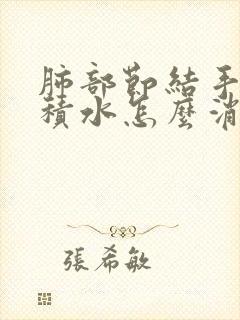 肺部節結手
積水怎麼消
張希敏